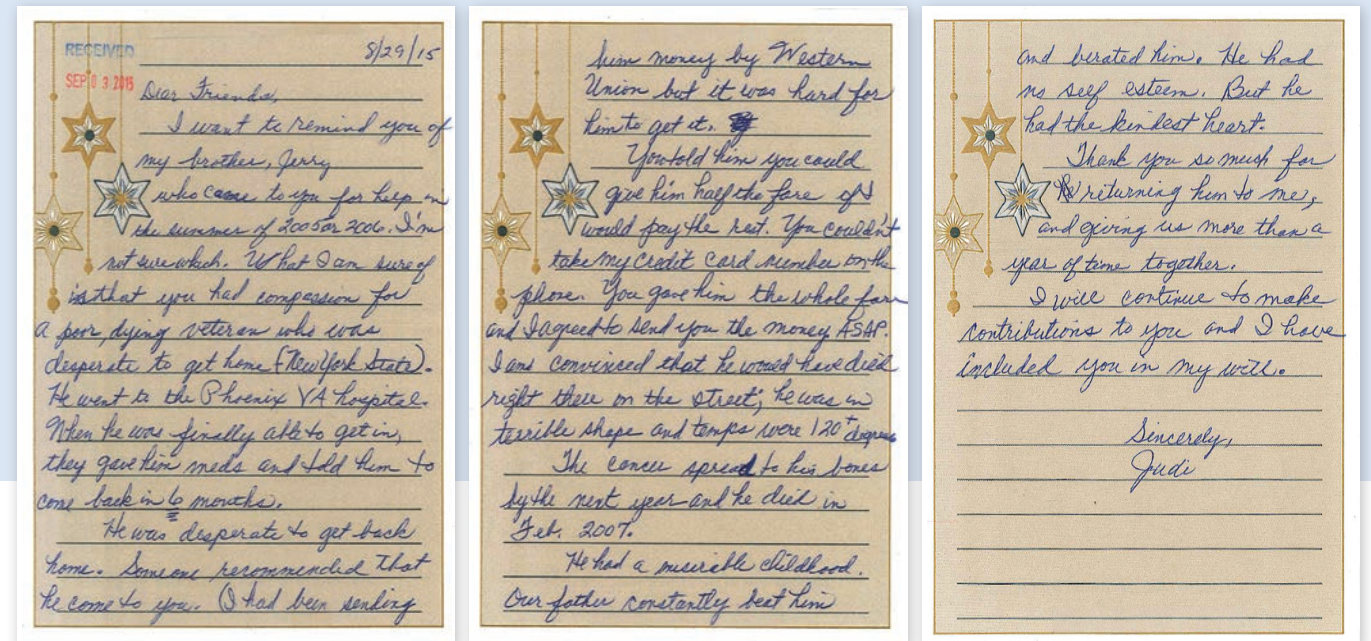 RECEIVED
SEP 03 2015
8/29/15
Dear Friends,
I want to remind you of
my brother, Jerry
who came to you for help in
the summer of 2005 or 2006. I'm
not sure which. What I am sure of
is that you had compassion for
a poor, dying veteran who was
desperate to get home (New York State).
He went to the Phoenix VA hospital.
When he was finally able to get in,
they gave him meds and told him to
come back in 6 months.
He was desperate to get back
home. Someone recommended that
he come to you. (I had been sending
him money by Western
Union but it was hard for
him to get it.
You told him you could
give him half the fare if I
would pay the rest. You couldn't
take my credit card number on the
phone. You gave him the whole fare
and I agreed to send you the money ASAP.
I am convinced that he would have died
right there on the street; he was in
terrible shape and temps were 120+ degrees
The cancer spread to his bones
by the next year and he died in
Feb. 2007.
He had a miserable childhood.
Our father constantly beat him
and berated him. He had
no self esteem. But he
had the kindest heart.
Thank you so much for
returning him to me,
and giving us more than a
year of time together.
I will continue to make
contributions to you and I have
included you in my will.
Sincerely,
Judi